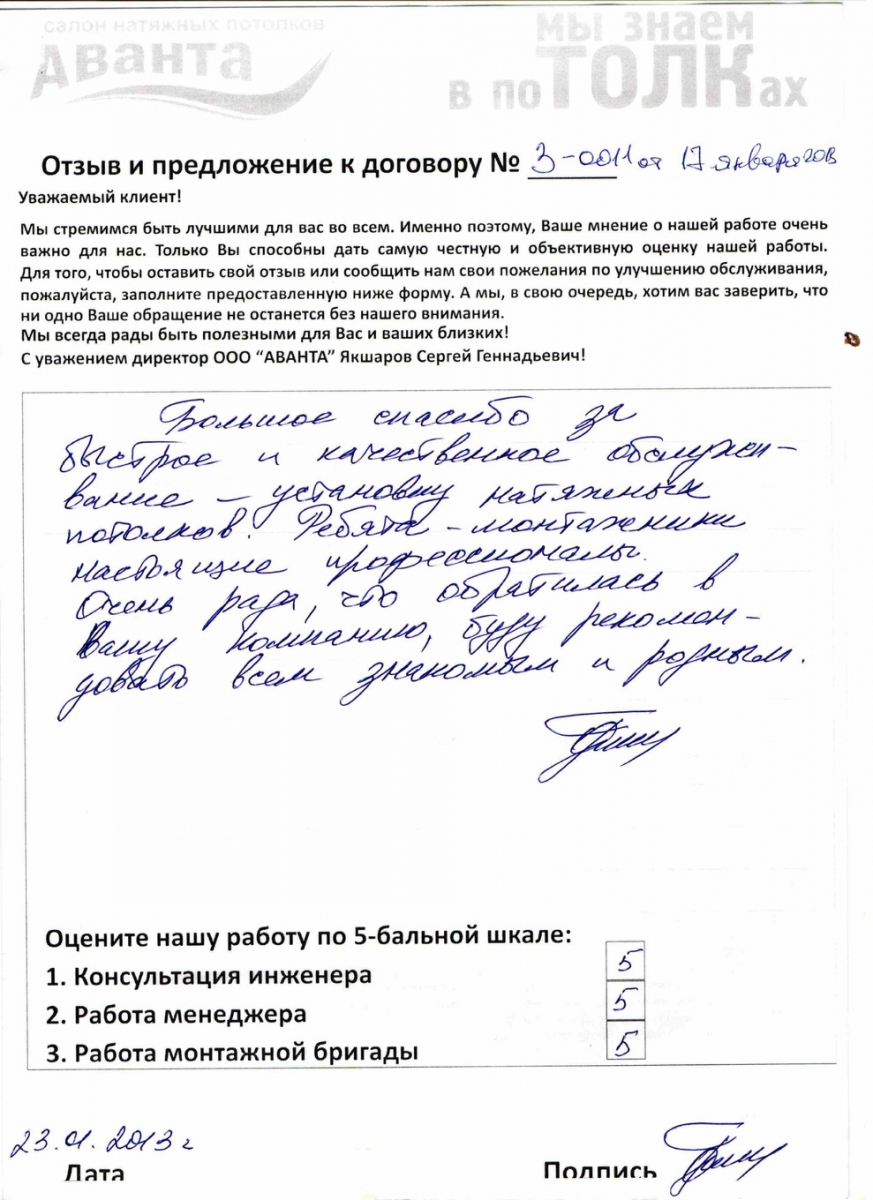 салон натяжных потолков
Аванта
мы знаем
в поТОЛКах
Отзыв и предложение к договору № 3-0011 от 17 января 2013
Уважаемый клиент!
Мы стремимся быть лучшими для вас во всем. Именно поэтому, Ваше мнение о нашей работе очень
важно для нас. Только Вы способны дать самую честную и объективную оценку нашей работы.
Для того, чтобы оставить свой отзыв или сообщить нам свои пожелания по улучшению обслуживания,
пожалуйста, заполните предоставленную ниже форму. А мы, в свою очередь, хотим вас заверить, что
ни одно Ваше обращение не останется без нашего внимания.
Мы всегда рады быть полезными для Вас и ваших близких!
С уважением директор ООО "АВАНТА" Якшаров Сергей Геннадьевич!
Большое спасибо за
быстрое и качественное обслужи-
вание - установку натяжных
потолков. Ребята - монтажники
настоящие профессионалы.
Очень рада, что обратилась в
Вашу компанию, буду рекомен-
довать всем знакомым и родным.
Оцените нашу работу по 5-бальной шкале:
1. Консультация инженера 5
2. Работа менеджера 5
3. Работа монтажной бригады 5
23.01.2013 г
Дата Подпись